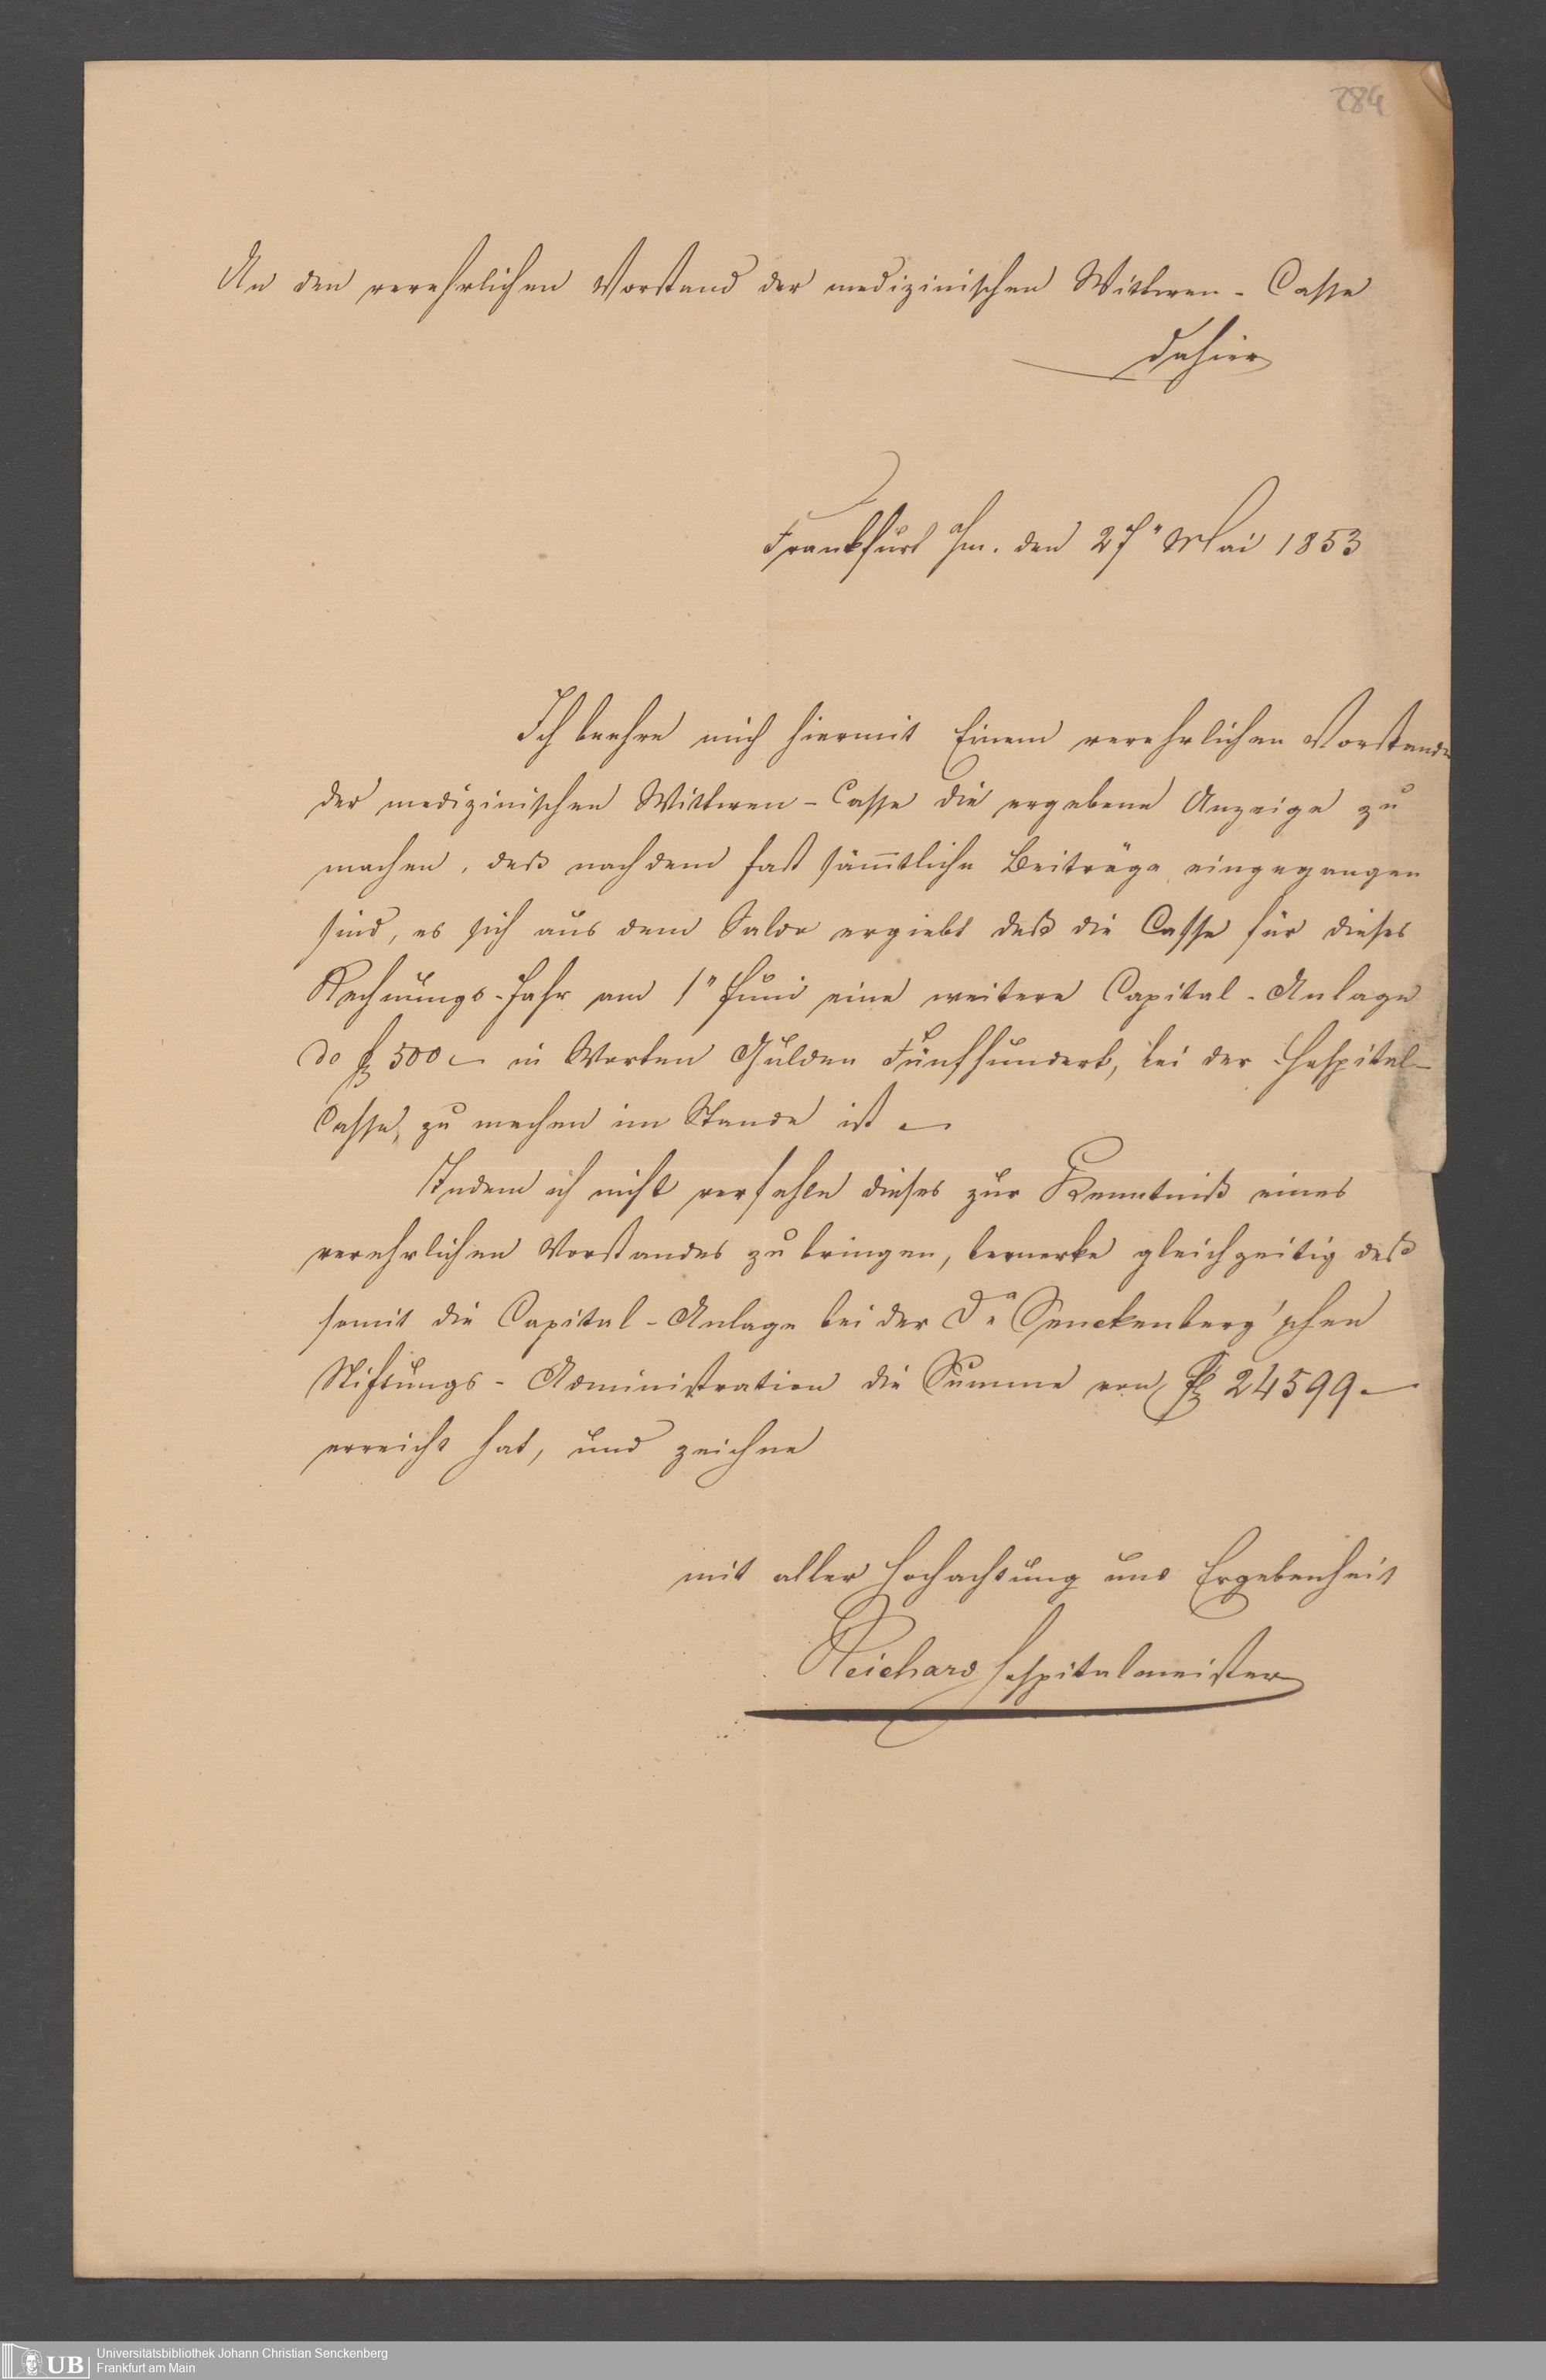 284
An den verehrlichen Vorstand der medizinischen Wittwen-Casse
dahier
Frankfurt a/m. den 27" Mai 1853
Ich beehre mich hiermit Einem verehrlichen Vorstande
der medizinischen Wittwen-Casse die ergebene Anzeige zu
machen, daß nachdem fast säm̄tliche Beiträge eingegangen
sind, es sich aus dem Saldo ergiebt daß die Casse für dieses
Rechnungs-Jahr am 1" Juni eine weitere Capital-Anlage
de fl 500 – in Worten Gulden Fünfhundert, bei der Hospital-
Casse, zu machen im Stande ist –
Indem ich nicht verfehle dieses zur Kenntniß eines
verehrlichen Vorstandes zu bringen, bemerke gleichzeitig daß
somit die Capital-Anlage bei der Dr Senckenberg'schen
Stiftungs-Administration die Summe von fl 24599 –
erreicht hat, und zeichne
mit aller Hochachtung und Ergebenheit
Reichard Hospitalmeister
UB
Universitätsbibliothek Johann Christian Senckenberg
Frankfurt am Main